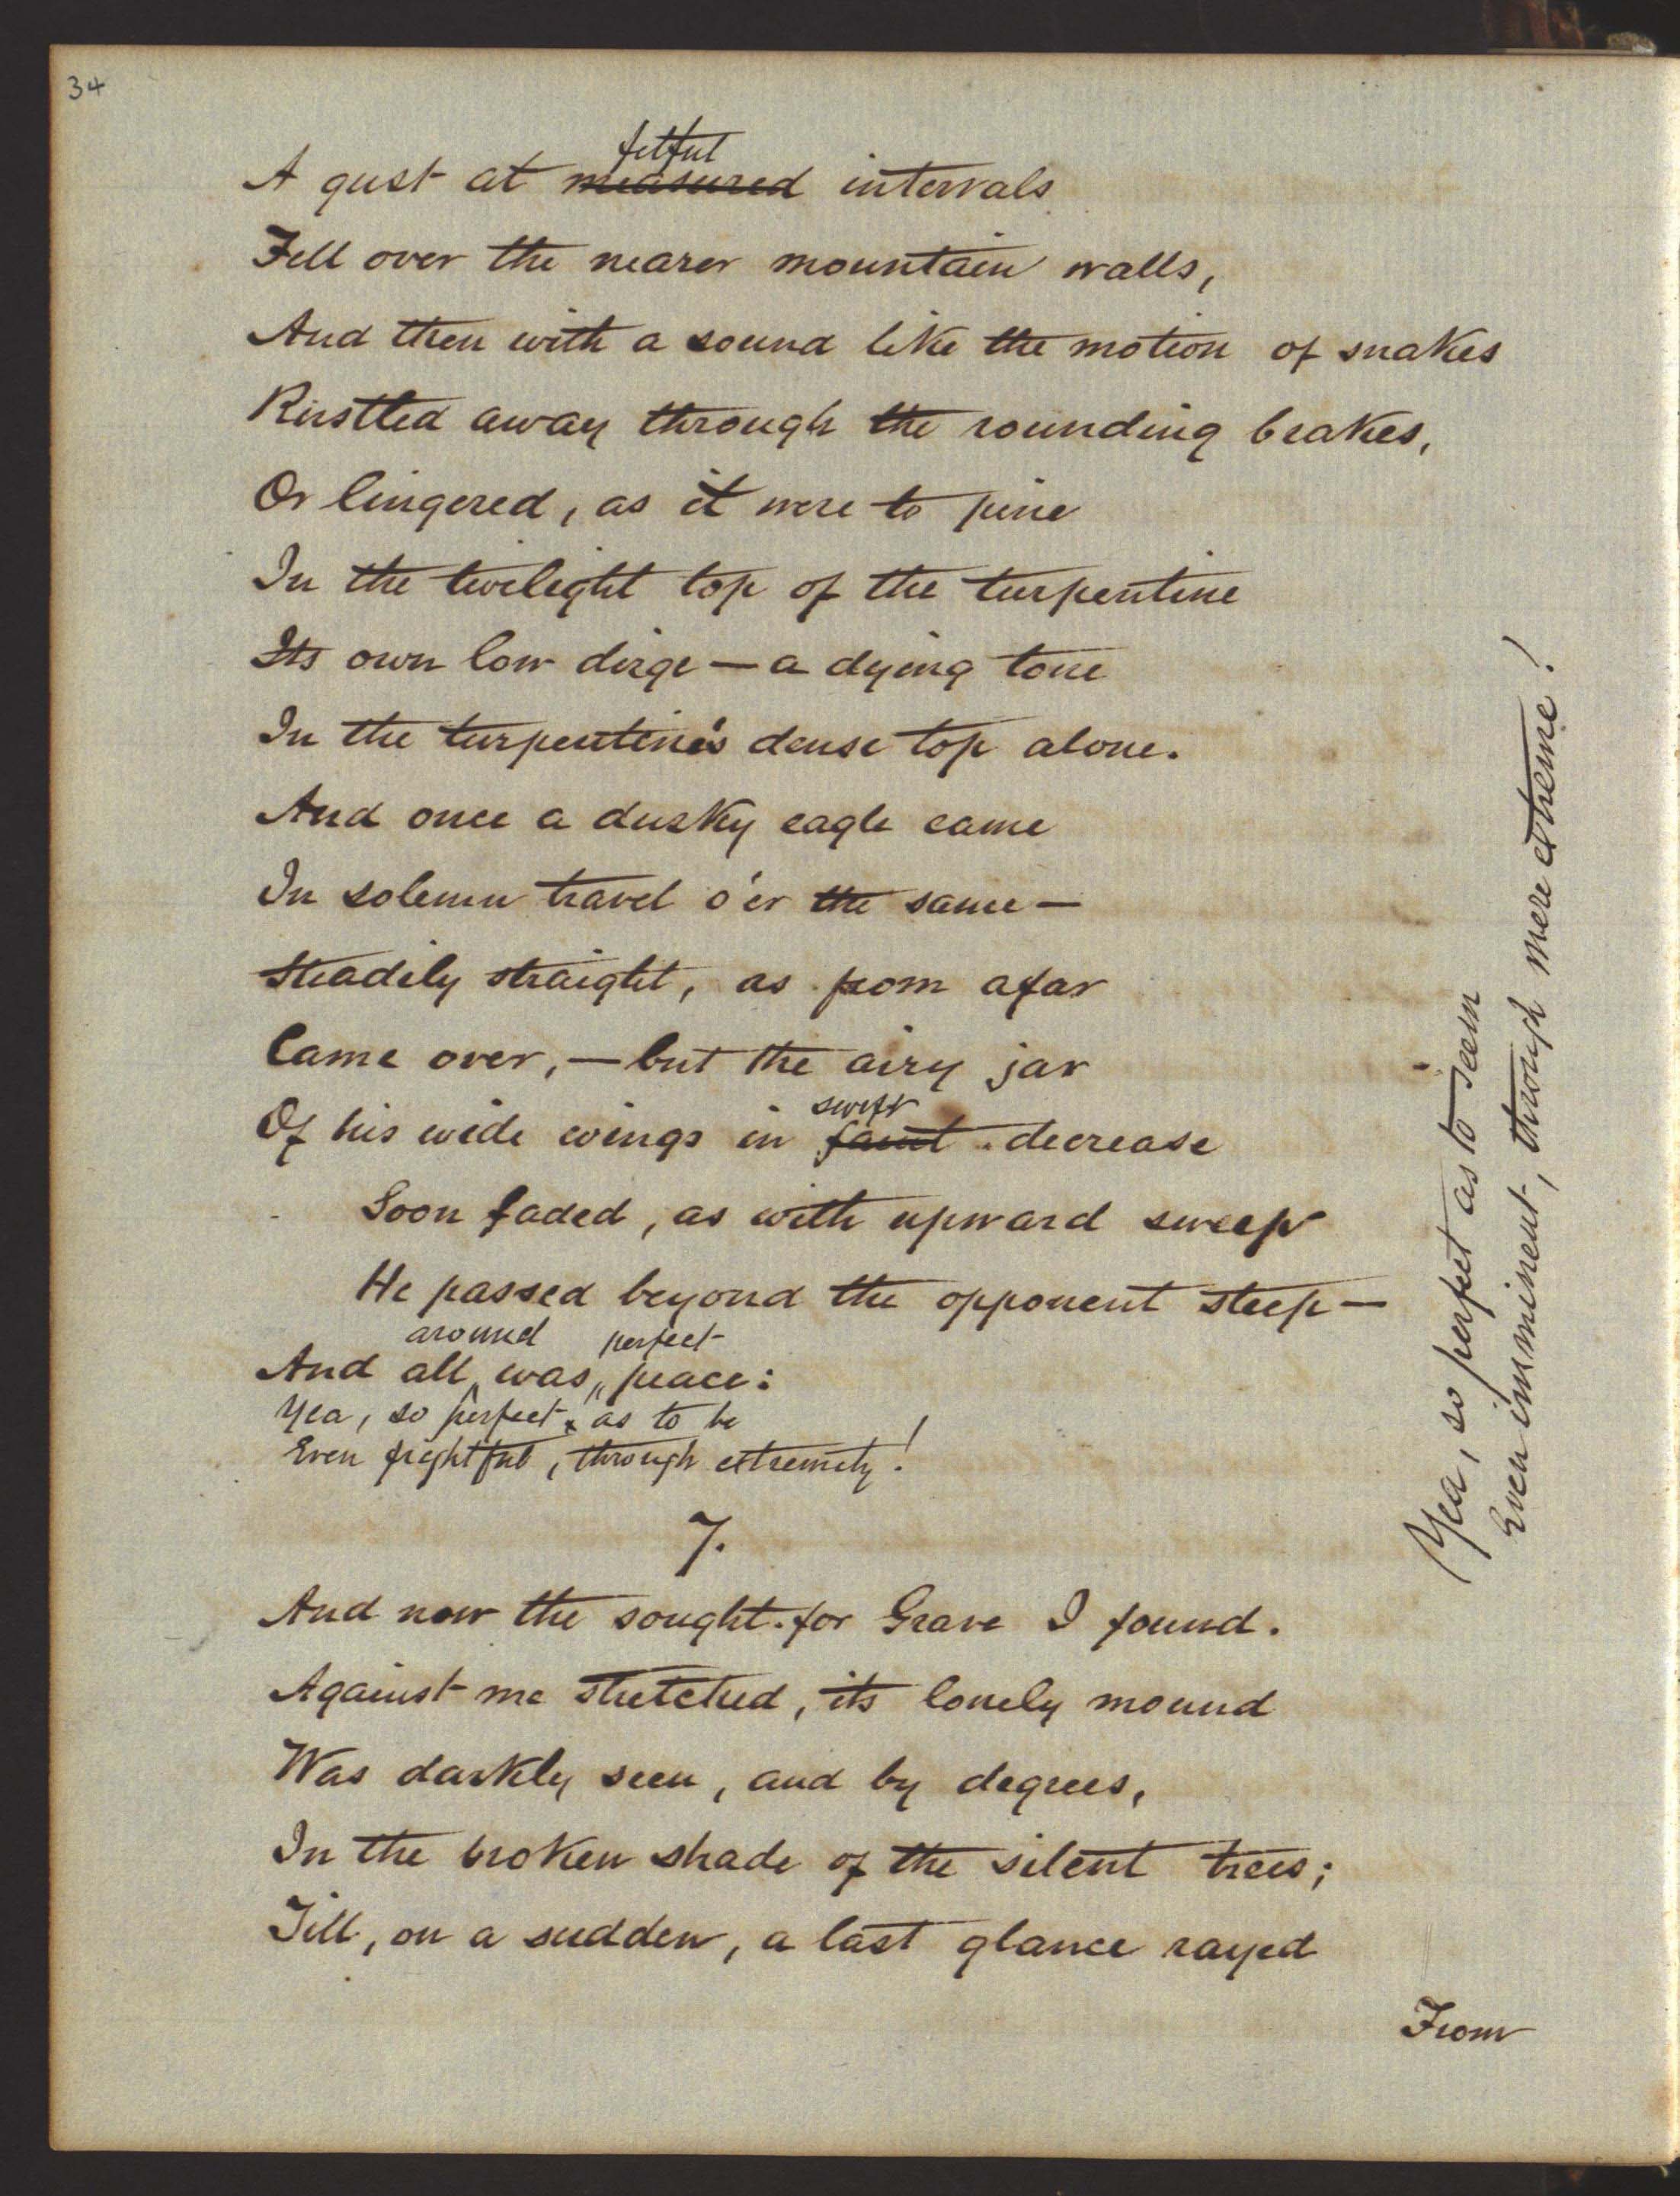 34
fitful
A gust at measured intervals
Fell over the nearer mountain walls,
And then with a sound like the motion of snakes
Rustled away through the rounding brakes,
Or lingered, as it were to pine
In the twilight top of the turpentine
Its own low dirge — a dying tone
In the turpentine's dense top alone.
And once a dusky eagle came
In solemn travel o'er the same —
Steadily straight, as from afar
Came over, — but the airy jar
swift
Of his wide wings in faint decrease
Soon faded, as with upward sweep
He passed beyond the opponent steep —
around perfect
And all was peace:
Yea, so perfect as to be
Even frightful, through extremity!
7.
And now the sought-for Grave I found.
Against me stretched, its lonely mound
Was darkly seen, and by degrees,
In the broken shade of the silent trees;
Till, on a sudden, a last glance rayed
From
Yea, so perfect as to seem
Even imminent, through mere extreme!